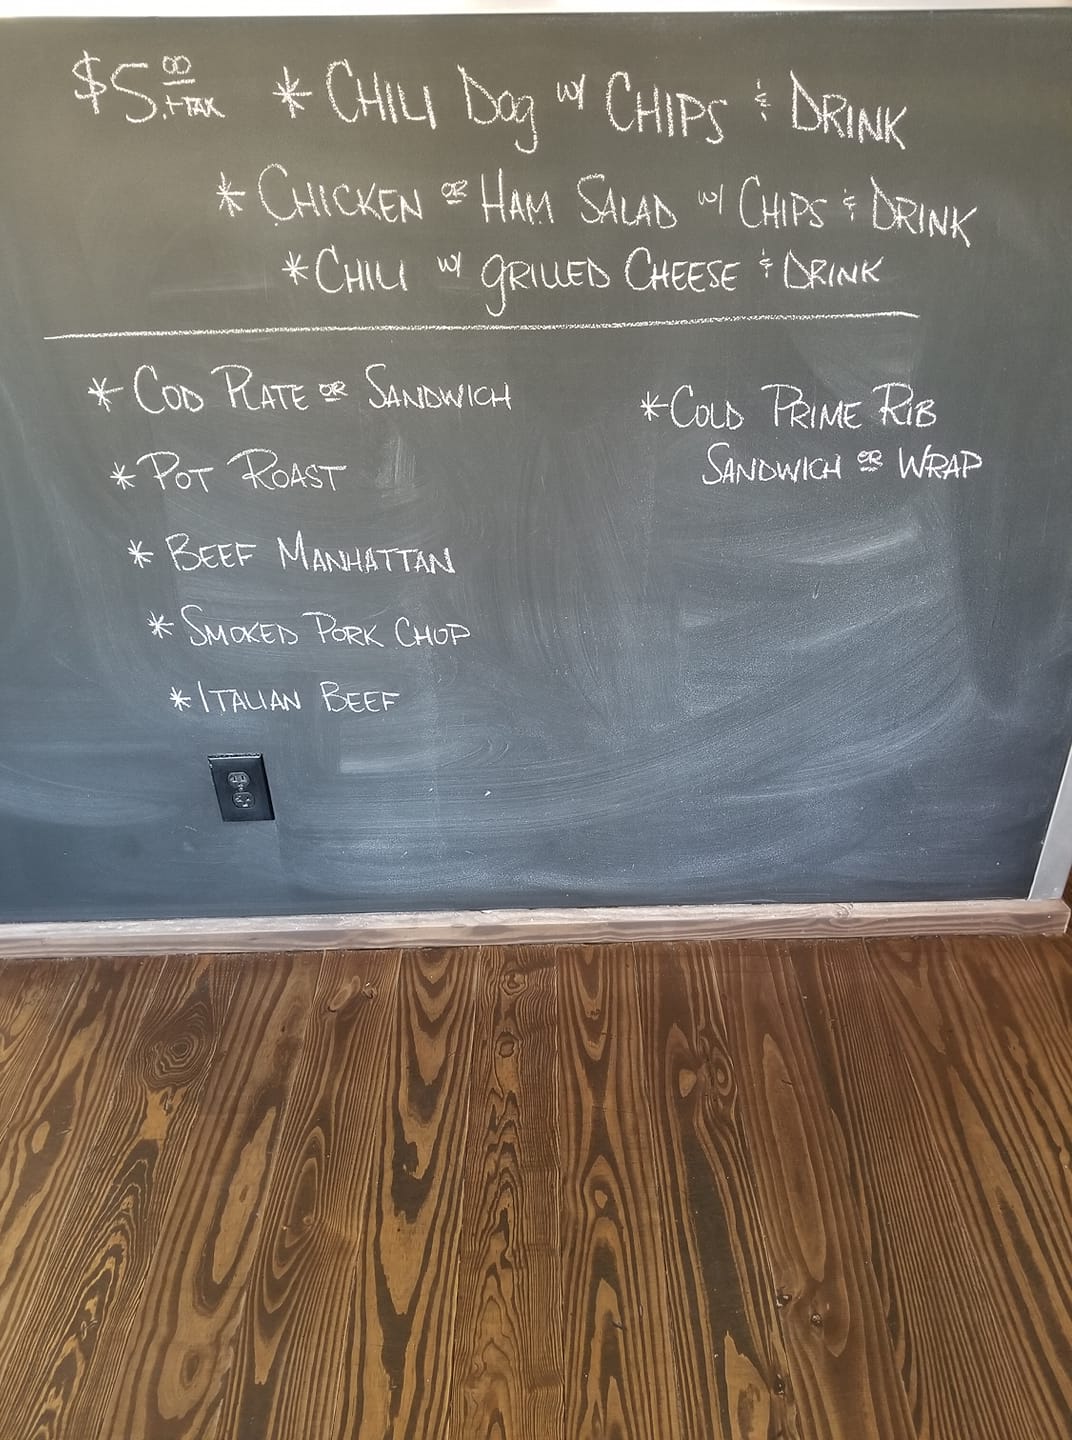 $5.00 +TAX * CHILI DOg w/ CHIPS & DRINK
* CHICKEN OR HAM SALAD w/ CHIPS & DRINK
* CHILI w/ gRILLED CHEESE & DRINK
* COD PLATE OR SANDWICH
* POT ROAST
* BEEF MANHATTAN
* SMOKED PORK CHOP
* ITALIAN BEEF
* COLD PRIME RIB
SANDWICH OR WRAP